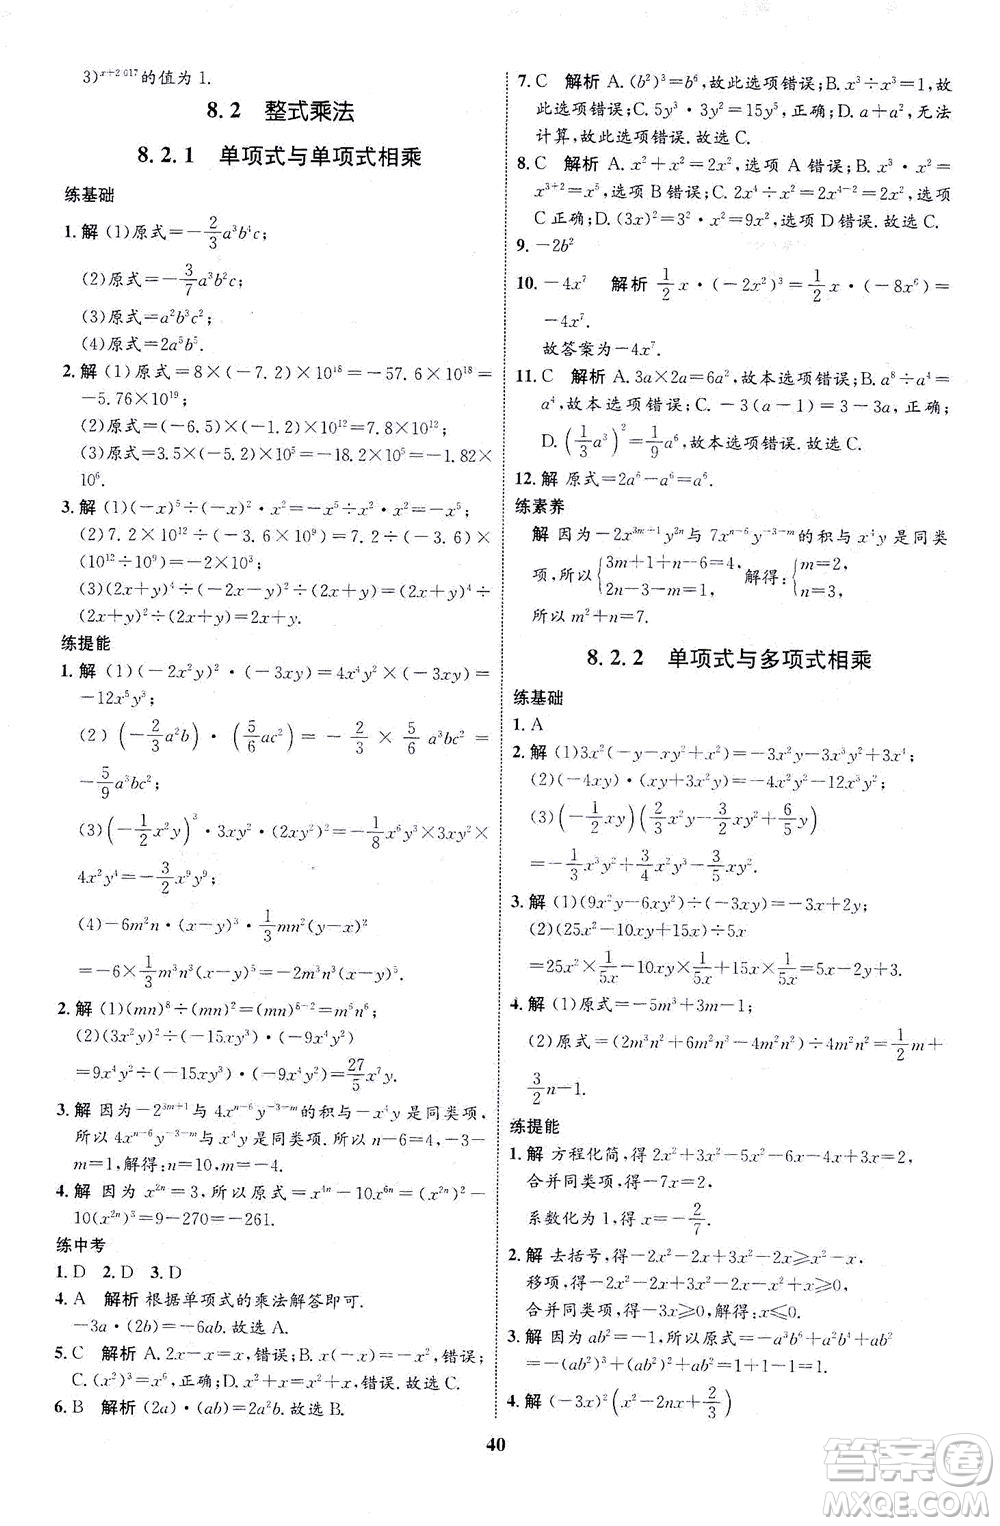 3)^{x+2 017}的值为 1.
8.2 整式乘法
8.2.1 单项式与单项式相乘
练基础
1.解 (1)原式=-2/3a³b⁴c;
(2)原式=-3/7a³b²c;
(3)原式=a²b³c²;
(4)原式=2a⁵b⁵.
2.解 (1)原式=8×(-7.2)×10¹⁸=-57.6×10¹⁸=
-5.76×10¹⁹;
(2)原式=(-6.5)×(-1.2)×10¹²=7.8×10¹²;
(3)原式=3.5×(-5.2)×10⁵=-18.2×10⁵=-1.82×
10⁶.
3.解 (1)(-x)⁵÷(-x)²·x²=-x⁵÷x²·x²=-x⁵;
(2)7.2×10¹²÷(-3.6×10⁹)=7.2÷(-3.6)×
(10¹²÷10⁹)=-2×10³;
(3)(2x+y)⁴÷(-2x-y)²÷(2x+y)=(2x+y)⁴÷
(2x+y)²÷(2x+y)=2x+y.
练提能
1.解 (1)(-2x²y)²·(-3xy)=4x⁴y²·(-3xy)=
-12x⁵y³;
(2)(-2/3a²b)·(5/6ac²)=-2/3×5/6a³bc²=
-5/9a³bc²;
(3)(-1/2x²y)³·3xy²·(2xy²)²=-1/8x⁶y³×3xy²×
4x²y⁴=-3/2x⁹y⁹;
(4)-6m²n·(x-y)³·1/3mn²·(y-x)²
=-6×1/3m³n³(x-y)⁵=-2m³n³(x-y)⁵.
2.解 (1)(mn)⁸÷(mn)²=(mn)⁸⁻²=m⁶n⁶;
(2)(3x²y)²÷(-15xy³)·(-9x⁴y²)
=9x⁴y²÷(-15xy³)·(-9x⁴y²)=27/5x⁷y.
3.解 因为-2^{3m+1}与4x^{n-6}y^{-3-m}的积与-x⁴y是同类项,
所以4x^{n-6}y^{-3-m}与x⁴y是同类项.所以n-6=4,
-3-m=1,解得:n=10,m=-4.
4.解 因为x^{2n}=3,所以原式=x^{4n}-10x^{6n}=(x^{2n})²-
10(x^{2n})³=9-270=-261.
练中考
1.D 2.D 3.D
4.A 解析 根据单项式的乘法解答即可.
-3a·(2b)=-6ab.故选A.
5.C 解析 A.2x-x=x,错误;B.x(-x)=-x²,错误;
C.(x²)³=x⁶,正确;D.x²+x=x²+x,错误.故选C.
6.B 解析 (2a)·(ab)=2a²b.故选B.
7.C 解析 A.(b²)³=b⁶,故此选项错误;B.x³÷x³=1,故
此选项错误;C.5y³·3y²=15y⁵,正确;D.a+a²,无法
计算,故此选项错误.故选C.
8.C 解析 A.x²+x²=2x²,选项A错误;B.x³·x²=
x³⁺²=x⁵,选项B错误;C.2x⁴÷x²=2x⁴⁻²=2x²,选项
C正确;D.(3x)²=3²·x²=9x²,选项D错误.故选C.
9.-2b²
10.-4x⁷ 解析 1/2x·(-2x²)³=1/2x·(-8x⁶)=
-4x⁷.
故答案为-4x⁷.
11.C 解析 A.3a×2a=6a²,故本选项错误;B.a⁸÷a⁴=
a⁴,故本选项错误;C.-3(a-1)=3-3a,正确;
D.(1/3a³)²=1/9a⁶,故本选项错误.故选C.
12.解 原式=2a⁶-a⁶=a⁶.
练素养
解 因为-2x^{3m+1}y^{2n}与7x^{n-6}y^{-3-m}的积与x⁴y是同类
项,所以{3m+1+n-6=4, 2n-3-m=1, 解得:{m=2, n=3,
所以m²+n=7.
8.2.2 单项式与多项式相乘
练基础
1.A
2.解 (1)3x²(-y-xy²+x²)=-3x²y-3x³y²+3x⁴;
(2)(-4xy)·(xy+3x²y)=-4x²y²-12x³y²;
(3)(-1/2xy)(2/3x²y-3/5xy²+6/5y)
=-1/3x³y²+3/10x²y³-3/5xy².
3.解 (1)(9x²y-6xy²)÷(-3xy)=-3x+2y;
(2)(25x²-10xy+15x)÷5x
=25x²×1/5x-10xy×1/5x+15x×1/5x=5x-2y+3.
4.解 (1)原式=-5m³+3m-1;
(2)原式=(2m³n²-6m²n³-4m²n²)÷4m²n²=1/2m+
3/2n-1.
练提能
1.解 方程化简,得2x²+3x-5x-2x²-5x=2,
合并同类项,得-7x=2,
系数化为1,得x=-2/7.
2.解 去括号,得-2x²+x+2x²-2x≥2x,
移项,得-2x²+x+2x²-2x-2x≥0,
合并同类项,得-3x≥0,解得:x≤0.
3.解 因为ab²=-1,所以原式=-a³b⁶+a²b⁴+ab²=
-(ab²)³+(ab²)²+ab²=1+1-1=1.
4.解 (-3x)²(x²-2nx+2/3)
40
答案圈
MXQE.COM